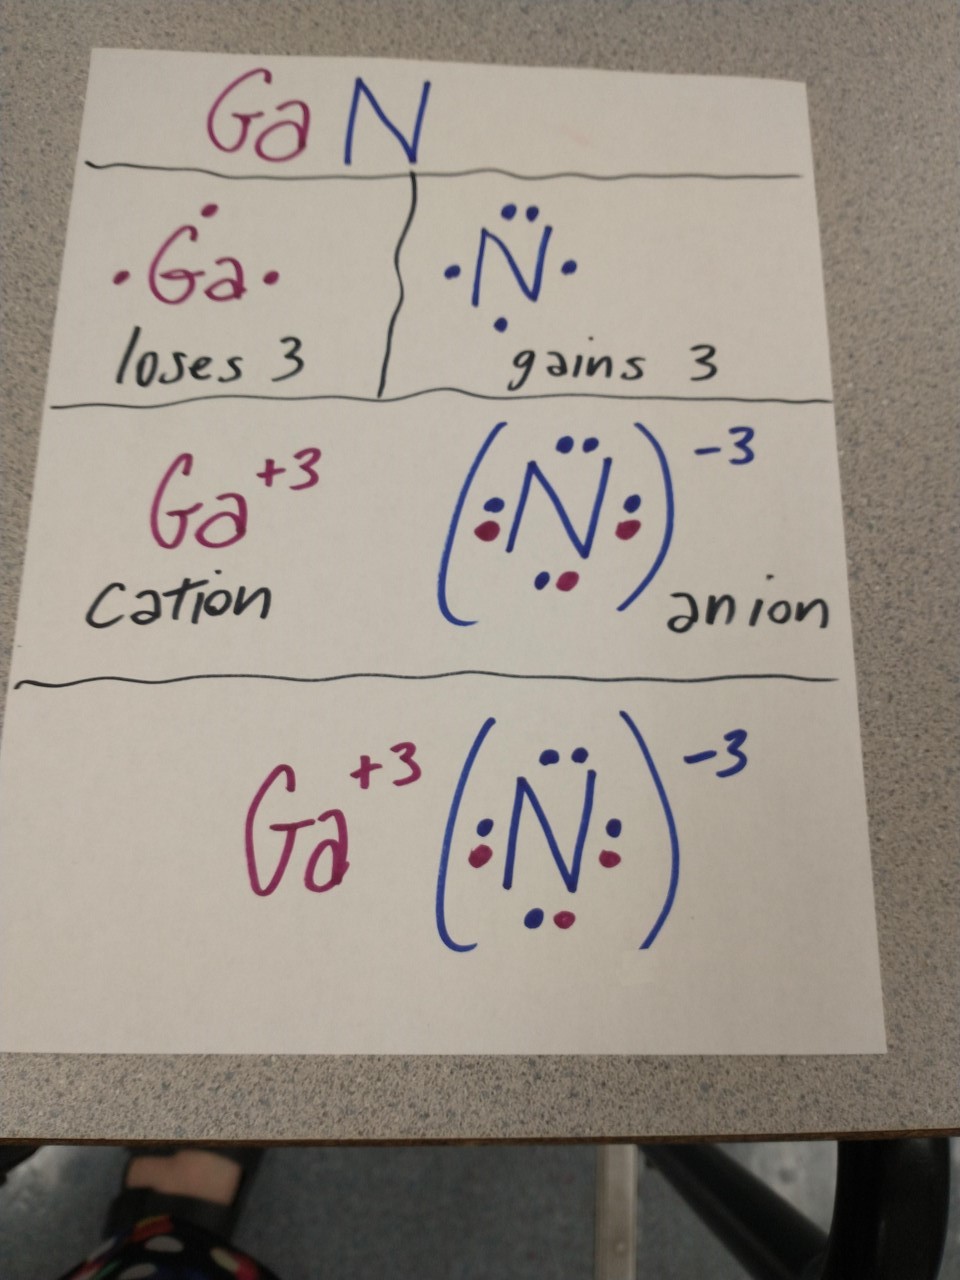 GaN
Ga N
loses 3 gains 3
Ga+3 (N)-3
Cation anion
Ga+3 (N)-3